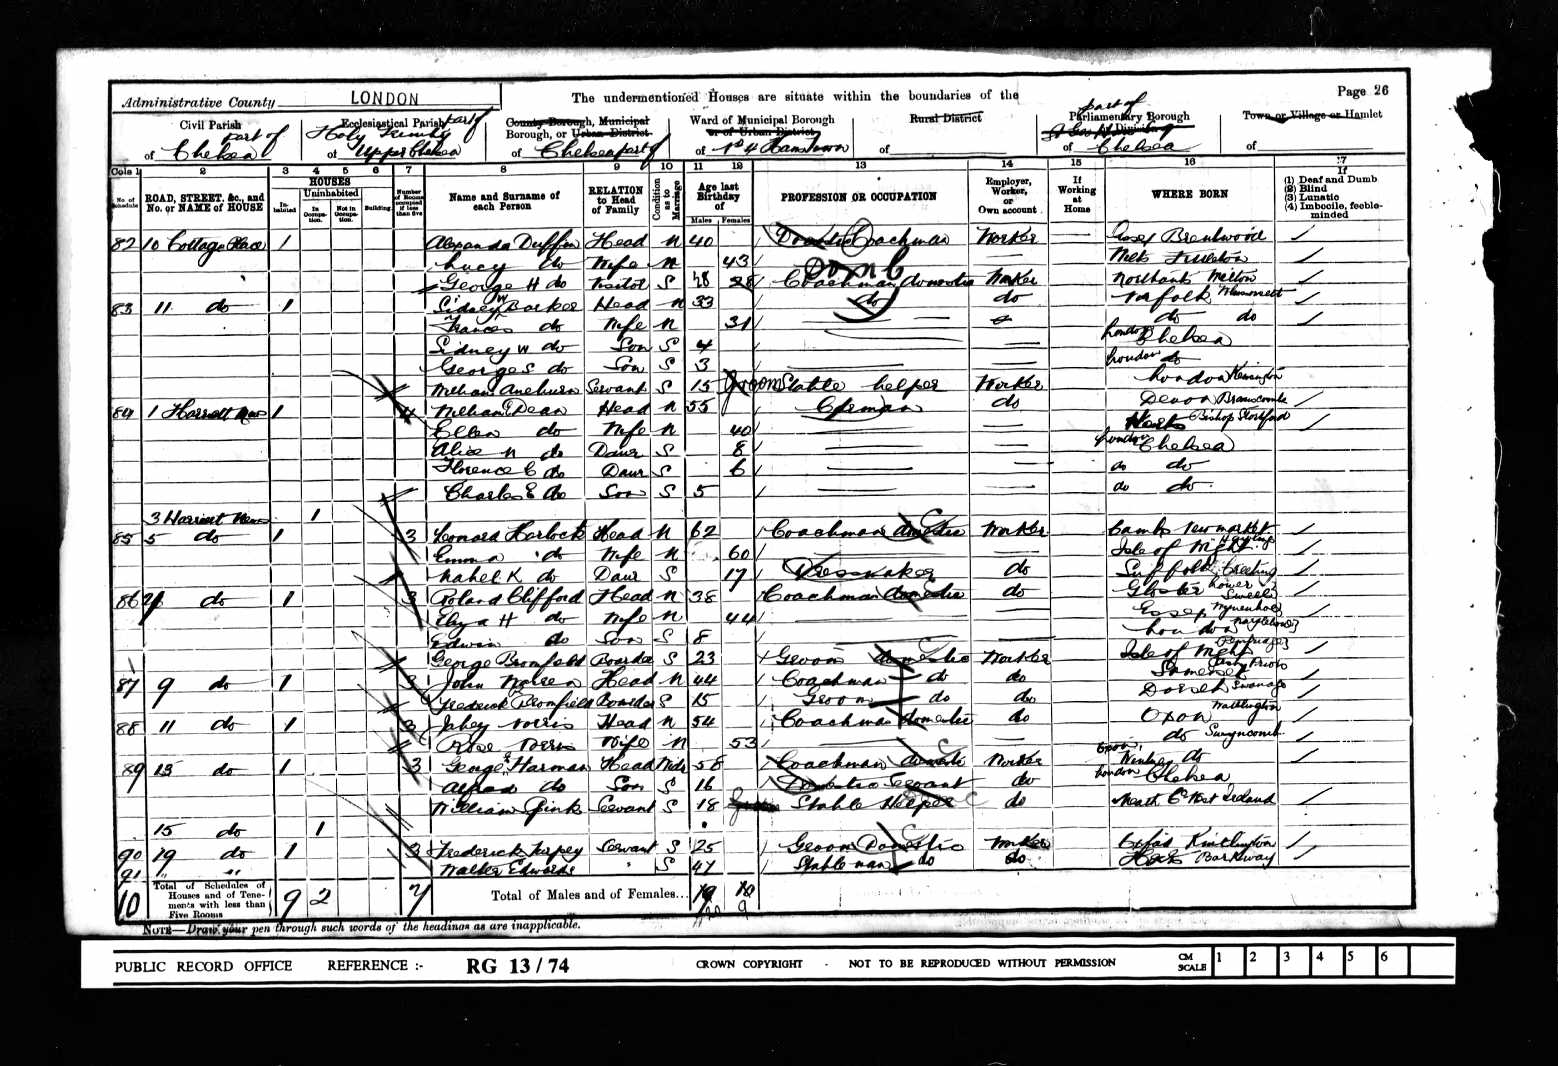 Administrative County LONDON The undermentioned Houses are situate within the boundaries of the Page 26
Civil Parish part of Chelsea
Ecclesiastical Parish part of Holy Trinity Upper Chelsea
County Borough, Municipal Borough, or Urban District of Chelsea part of
Ward of Municipal Borough or of Urban District of
Rural District of
part of Parliamentary Borough or Division of Chelsea
Town or Village or Hamlet of
Cols 1 2 3 4 5 6 7 8 9 10 11 12 13 14 15 16 17
No. of Schedule
ROAD, STREET, &c., and No. or NAME of HOUSE
HOUSES
Inhabited
Uninhabited
In Occupation.
Not in Occupation.
Building.
Number of Rooms occupied if less than five
Name and Surname of each Person
RELATION to Head of Family
Condition as to Marriage
Age last Birthday of
Males Females
PROFESSION OR OCCUPATION
Employer, Worker, or Own account
If Working at Home
WHERE BORN
If (1) Deaf and Dumb (2) Blind (3) Lunatic (4) Imbecile, feeble-minded
82 10 Cottage Place 1 Head M 40 Domestic Coachman Worker Essex Brentwood
Lucy do Wife M 43 Wilts
George H do Visitor S 28 28 Coachman domestic Worker Northants Milton
83 11 do 1 Sidney W Barker Head M 33 do do Norfolk
Frances do Wife M 31 do do
Sidney W do Son S 4 London Chelsea
George S do Son S 3 London do
William Servant S 15 Groom Stable helper Worker London Kensington
84 1 Harriett Mews 1 4 William Dean Head M 55 do Devon Branscombe
Ellen do Wife M 40 Herts Bishop Stortford
Alice do Daur S 8 London Chelsea
Florence C do Daur S 6 do do
Charles E do Son S 5 do do
3 Harriett Mews 1
85 5 do 1 3 Leonard Head M 62 Coachman domestic Worker Cambs Newmarket
Emma do Wife M 60 Isle of Wight
Mabel K do Daur S 17 Dressmaker do Suffolk
86 do 1 3 Roland Clifford Head M 38 Coachman domestic do Gloster Lower Swell
Eliza H do Wife M 44 Essex
Edwin do Son S 8 London Marylebone
George Bromfield Boarder S 23 Groom domestic Worker Isle of Wight
87 9 do 1 3 John Head M 44 Coachman do do Somerset
Frederick Bromfield Boarder S 15 Groom do do Dorset Swanage
88 11 do 1 3 Norris Head M 54 Coachman domestic do Oxon Watlington
Rose Norris Wife M 53 do Swyncomb
89 13 do 1 3 George Harman Head Widr 58 Coachman domestic Worker Oxon do
Alfred do Son S 16 Domestic Servant do London Chelsea
William Servant S 18 Groom Stable Helper do Ireland
15 do 1
90 19 do 1 3 Frederick Servant S 25 Groom Domestic Worker Kirtlington
91 " " Walter Edwards " S 47 Stable man do do Herts Barkway
10 Total of Schedules of Houses and of Tenements with less than Five Rooms 9 2 7 Total of Males and of Females... 19 10
20 9
NOTE—Draw your pen through such words of the headings as are inapplicable.
PUBLIC RECORD OFFICE REFERENCE :- RG 13/74 CROWN COPYRIGHT - NOT TO BE REPRODUCED WITHOUT PERMISSION CM SCALE 1 2 3 4 5 6